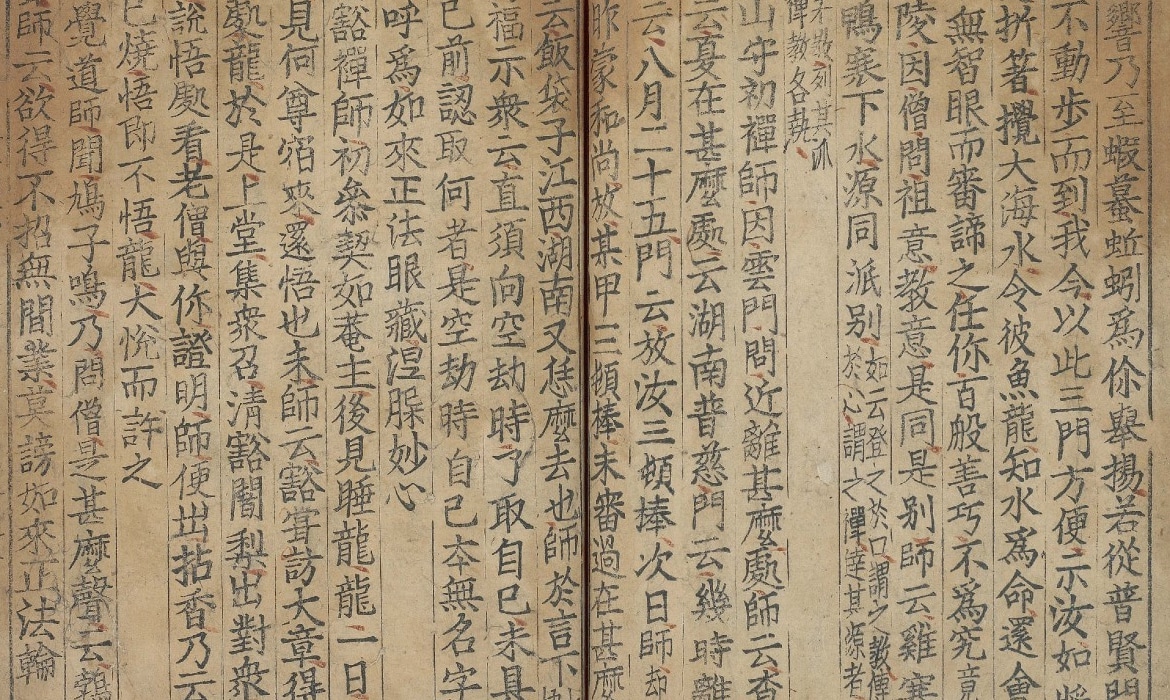 響乃至蝦蟇蚯蚓爲你舉揚若從普賢門
不動步而到我今以此三門方便示汝如將
折筯攪大海水令彼魚龍知水爲命還會
無智眼而審諦之任你百般善巧不爲究竟
陵因僧問祖意教意是同是別師云雞寒
鴨寒下水源同派別
如云登之於口謂之教傳
於心謂之禪達其源者
禪教各執
山守初禪師因雲門問近離甚麼處師云查
云夏在甚麼處云湖南普慈門云幾時離
云八月二十五門云放汝三頓棒次日師却
昨蒙和尚放某甲三頓棒未審過在甚麼
云飯袋子江西湖南又恁麼去也師於言下
福示衆云直須向空劫時了取自己未具
已前認取何者是空劫時自己本無名字
呼爲如來正法眼藏涅槃妙心
豁禪師初參契如菴主後見睡龍龍一日
見何尊宿來還悟也未師云豁甞訪大章得
處龍於是上堂集衆召清豁闍梨出對衆
說悟處看老僧與你證明師便出拈香乃云
已燒悟即不悟龍大悅而許之
覺道師聞鳩子鳴乃問僧是甚麼聲云鵓
師云欲得不招無間業莫謗如來正法輪